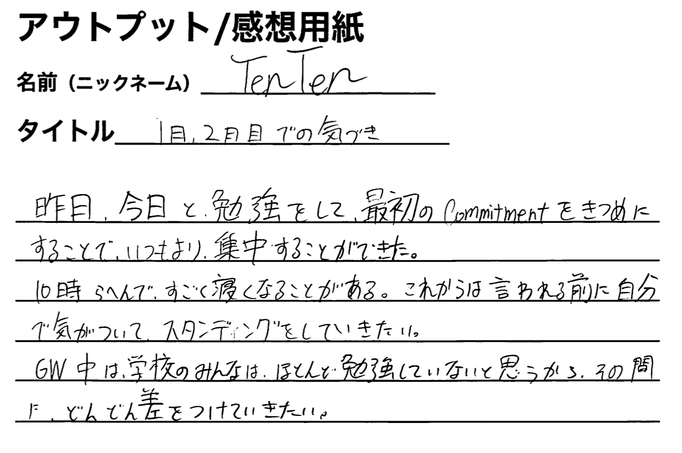 アウトプット/感想用紙
名前（ニックネーム） TenTen
タイトル 1日,2日目での気づき
昨日、今日と、勉強をして、最初のCommitmentをきつめに
することで、いつもより、集中することができた。
10時らへんで、すごく寝くなることがある。これからは言われる前に自分
で気がついて、スタンディングをしていきたい。
GW中は、学校のみんなは、ほとんど勉強していないと思うから、その間
に、どんどん差をつけていきたい。